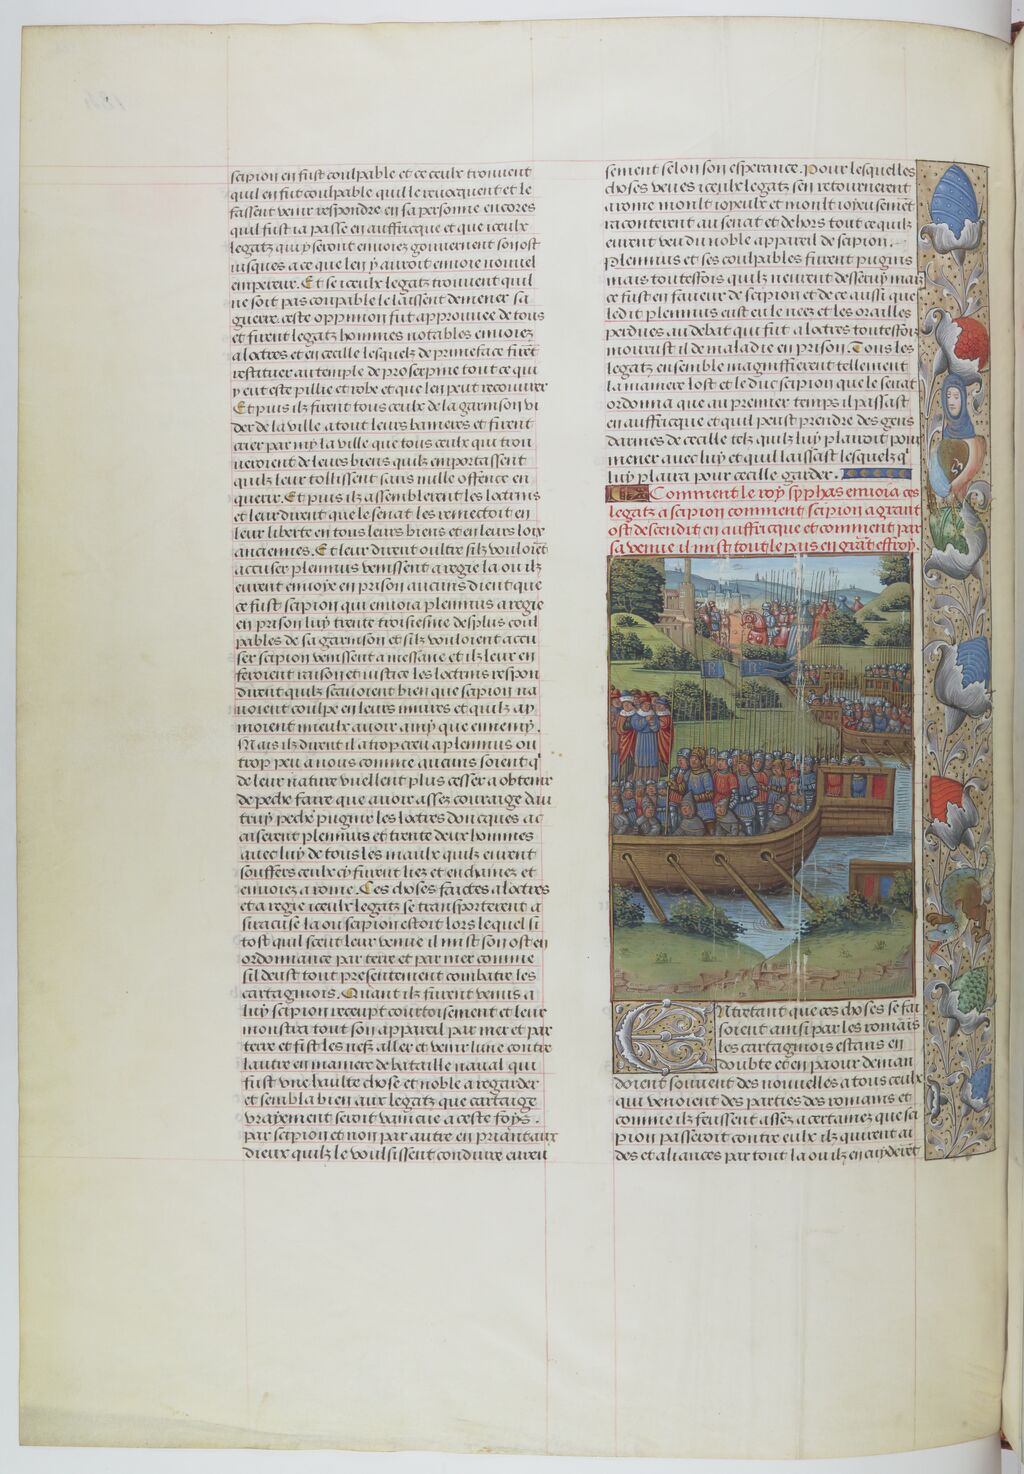 scipion en fust coulpable et ce ceulx trouvent
quil en fut coulpable quil le revocquent et le
fassent venir respondre en sa personne encores
quil fust ia passe en auffricque et que iceulx
legatz qui y seront envoiez gouvernent son ost
iusques a ce que len y auroit envoie nouvel
empereur. Et se iceulx legatz trouvent quil
ne soit pas coupable le laissent demener sa
guerre. ceste oppinion fut approuvee de tous
et furent legatz hommes notables envoiez
a loctres et en cecille lesquelz de primeface firet
restituer au temple de proserpine tout ce qui
y eut este pillie et robe et que len peut recouvrer
Et puis ilz firent tous ceulx de la garnison vi
der de la ville a tout leurs banieres et firent
crier par my la ville que tous ceulx qui trou
veroient de leurs biens quilz emportassent
quilz leur tollissent sans nulle offence en
querir. Et puis ilz assemblerent les loctrins
et leur dirent que le senat les remectoit en
leur liberte en tous leurs biens et en leurs loix
anciennes. Et leur dirent oultre silz vouloiet
accuser plenius venissent a regie la ou ilz
eurent envoye en prison aucuns dient que
ce fust scipion qui envoia plenius a regie
en prison luy trente troisiesme des plus coul
pables de sa garnison et silz vouloient accu
ser scipion venissent a messane et ilz leur en
feroient raison et iustice les loctrins respon
dirent quilz scavoient bien que scipion na
voient coulpe en leurs iniures et quilz ay
moient mieulx avoir amy que ennemy.
Mais ilz dirent il a trop creu a plenius ou
trop peu a nous comme aucuns soient q'
de leur nature vueillent plus cesser a obtenir
de peche faire que avoir assez couraige dau
truy peche pugnir les loctres doncques ac
cuserent plenius et trente deux hommes
avec luy de tous les maulx quilz eurent
souffers ceulx cy furent liez et enchainez et
envoiez a rome. Ces choses faictes a loctres
et a regie iceulx legatz se transporterent a
siracuse la ou scipion estoit lors lequel si
tost quil sceut leur venue il mist son ost en
ordonnance par terre et par mer comme
sil deust tout presentement combatre les
cartaginois. Quant ilz furent venus a
luy scipion receupt courtoisement et leur
monstra tout son appareil par mer et par
terre et fist les nefz aller et venir lune contre
lautre en maniere de bataille naval qui
fust une haulte chose et noble a regarder
et sembla bien aux legatz que cartaige
vrayement seroit vaincue a ceste foys.
par scipion et non par autre en priant aux
dieux quilz le voulsissent conduire eureu
sement selon son esperance. Pour lesquelles
choses veues iceulx legatz sen retournerent
a rome moult ioyeulx et moult ioyeusemet
raconterent au senat et dehors tout ce quilz
eurent veu du noble appareil de scipion.
Plenius et ses coulpables furent pugnis
mais toutesfois quilz neurent desservy mais
ce fust en faveur de scipion et de ce aussi que
ledit plenius eust eu le neez et les orailles
perdues au debat qui fut a loctres toutesfois
mourust il de maladie en prison. Tous les
legatz ensemble magnifierent tellement
la maniere lost et le duc scipion que le senat
ordonna que au premier temps il passast
en auffricque et quil peust prendre des gens
darmes de cecille telz quilz luy plairoit pour
mener avec luy et quil laissast lesquelz q'
luy plaira pour cecille garder.
Comment le roy syphas envoia ces
legatz a scipion comment scipion a grant
ost descendit en auffricque et comment par
sa venue il mist tout le pais en grat effroy.
Entretant que ces choses se fai
soient ainsi par les romais
les cartaginois estans en
doubte et en paour deman
doient souvent des nouvelles a tous ceulx
qui venoient des parties des romains et
comme ilz feussent assez acertainez que sci
pion passeroit contre eulx ilz quirent ai
des et aliances par tout la ou ilz en cuyderet